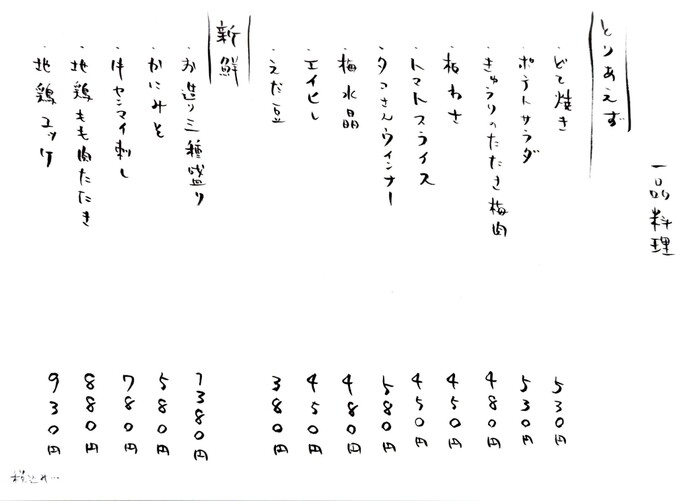 一品料理
とりあえず
・どて焼き 530円
・ポテトサラダ 530円
・きゅうりのたたき梅肉 480円
・板わさ 450円
・トマトスライス 450円
・タコさんウインナー 580円
・梅水晶 480円
・エイヒレ 450円
・えだ豆 380円
新鮮
・お造り三種盛り 1380円
・かにみそ 580円
・牛センマイ刺し 780円
・地鶏もも肉たたき 880円
・地鶏ユッケ 930円